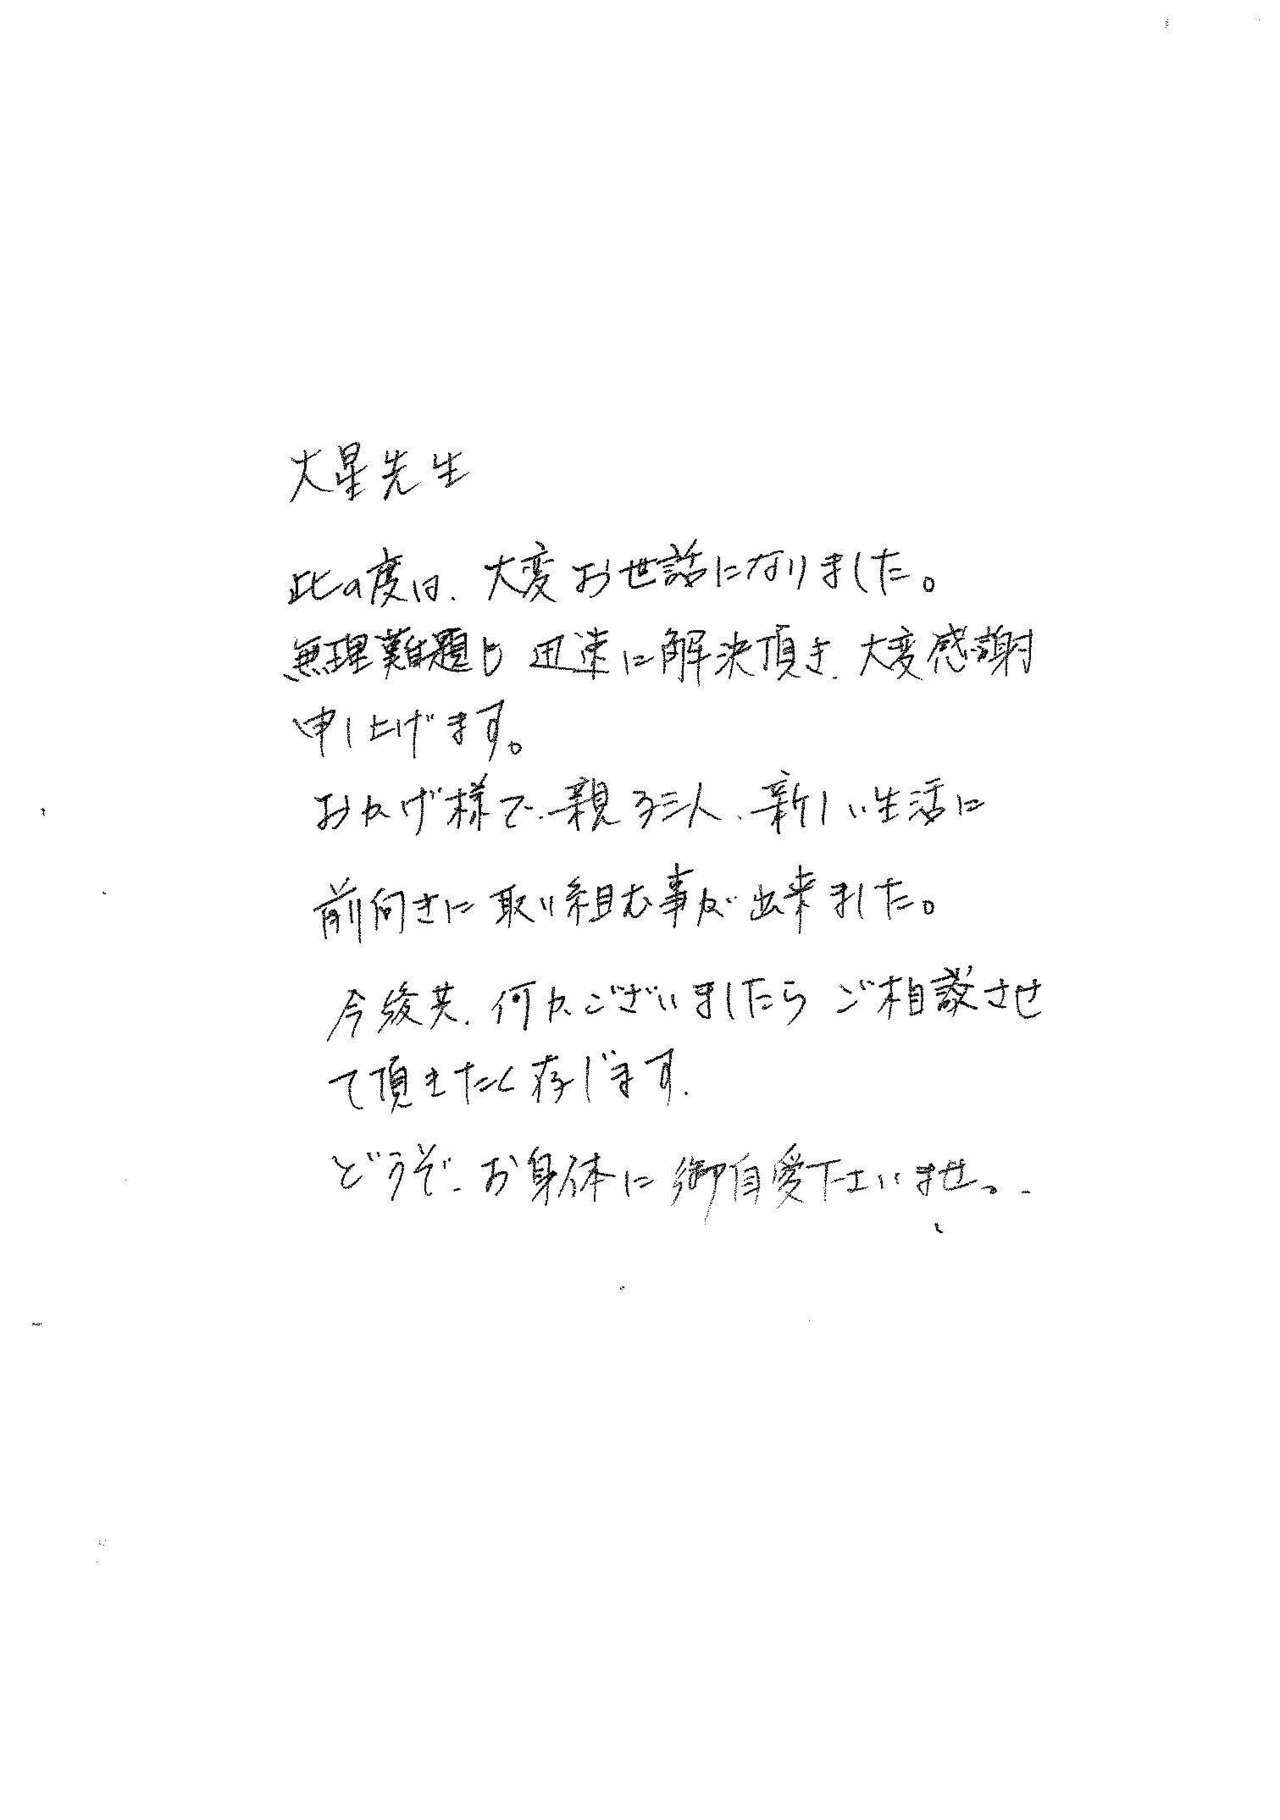 大星先生
此の度は、大変お世話になりました。
無理難題も迅速に解決頂き、大変感謝
申し上げます。
おかげ様で、親子三人、新しい生活に
前向きに取り組む事が出来ました。
今後共、何かございましたらご相談させ
て頂きたく存じます.
どうぞ、お身体に御自愛下さいませ。